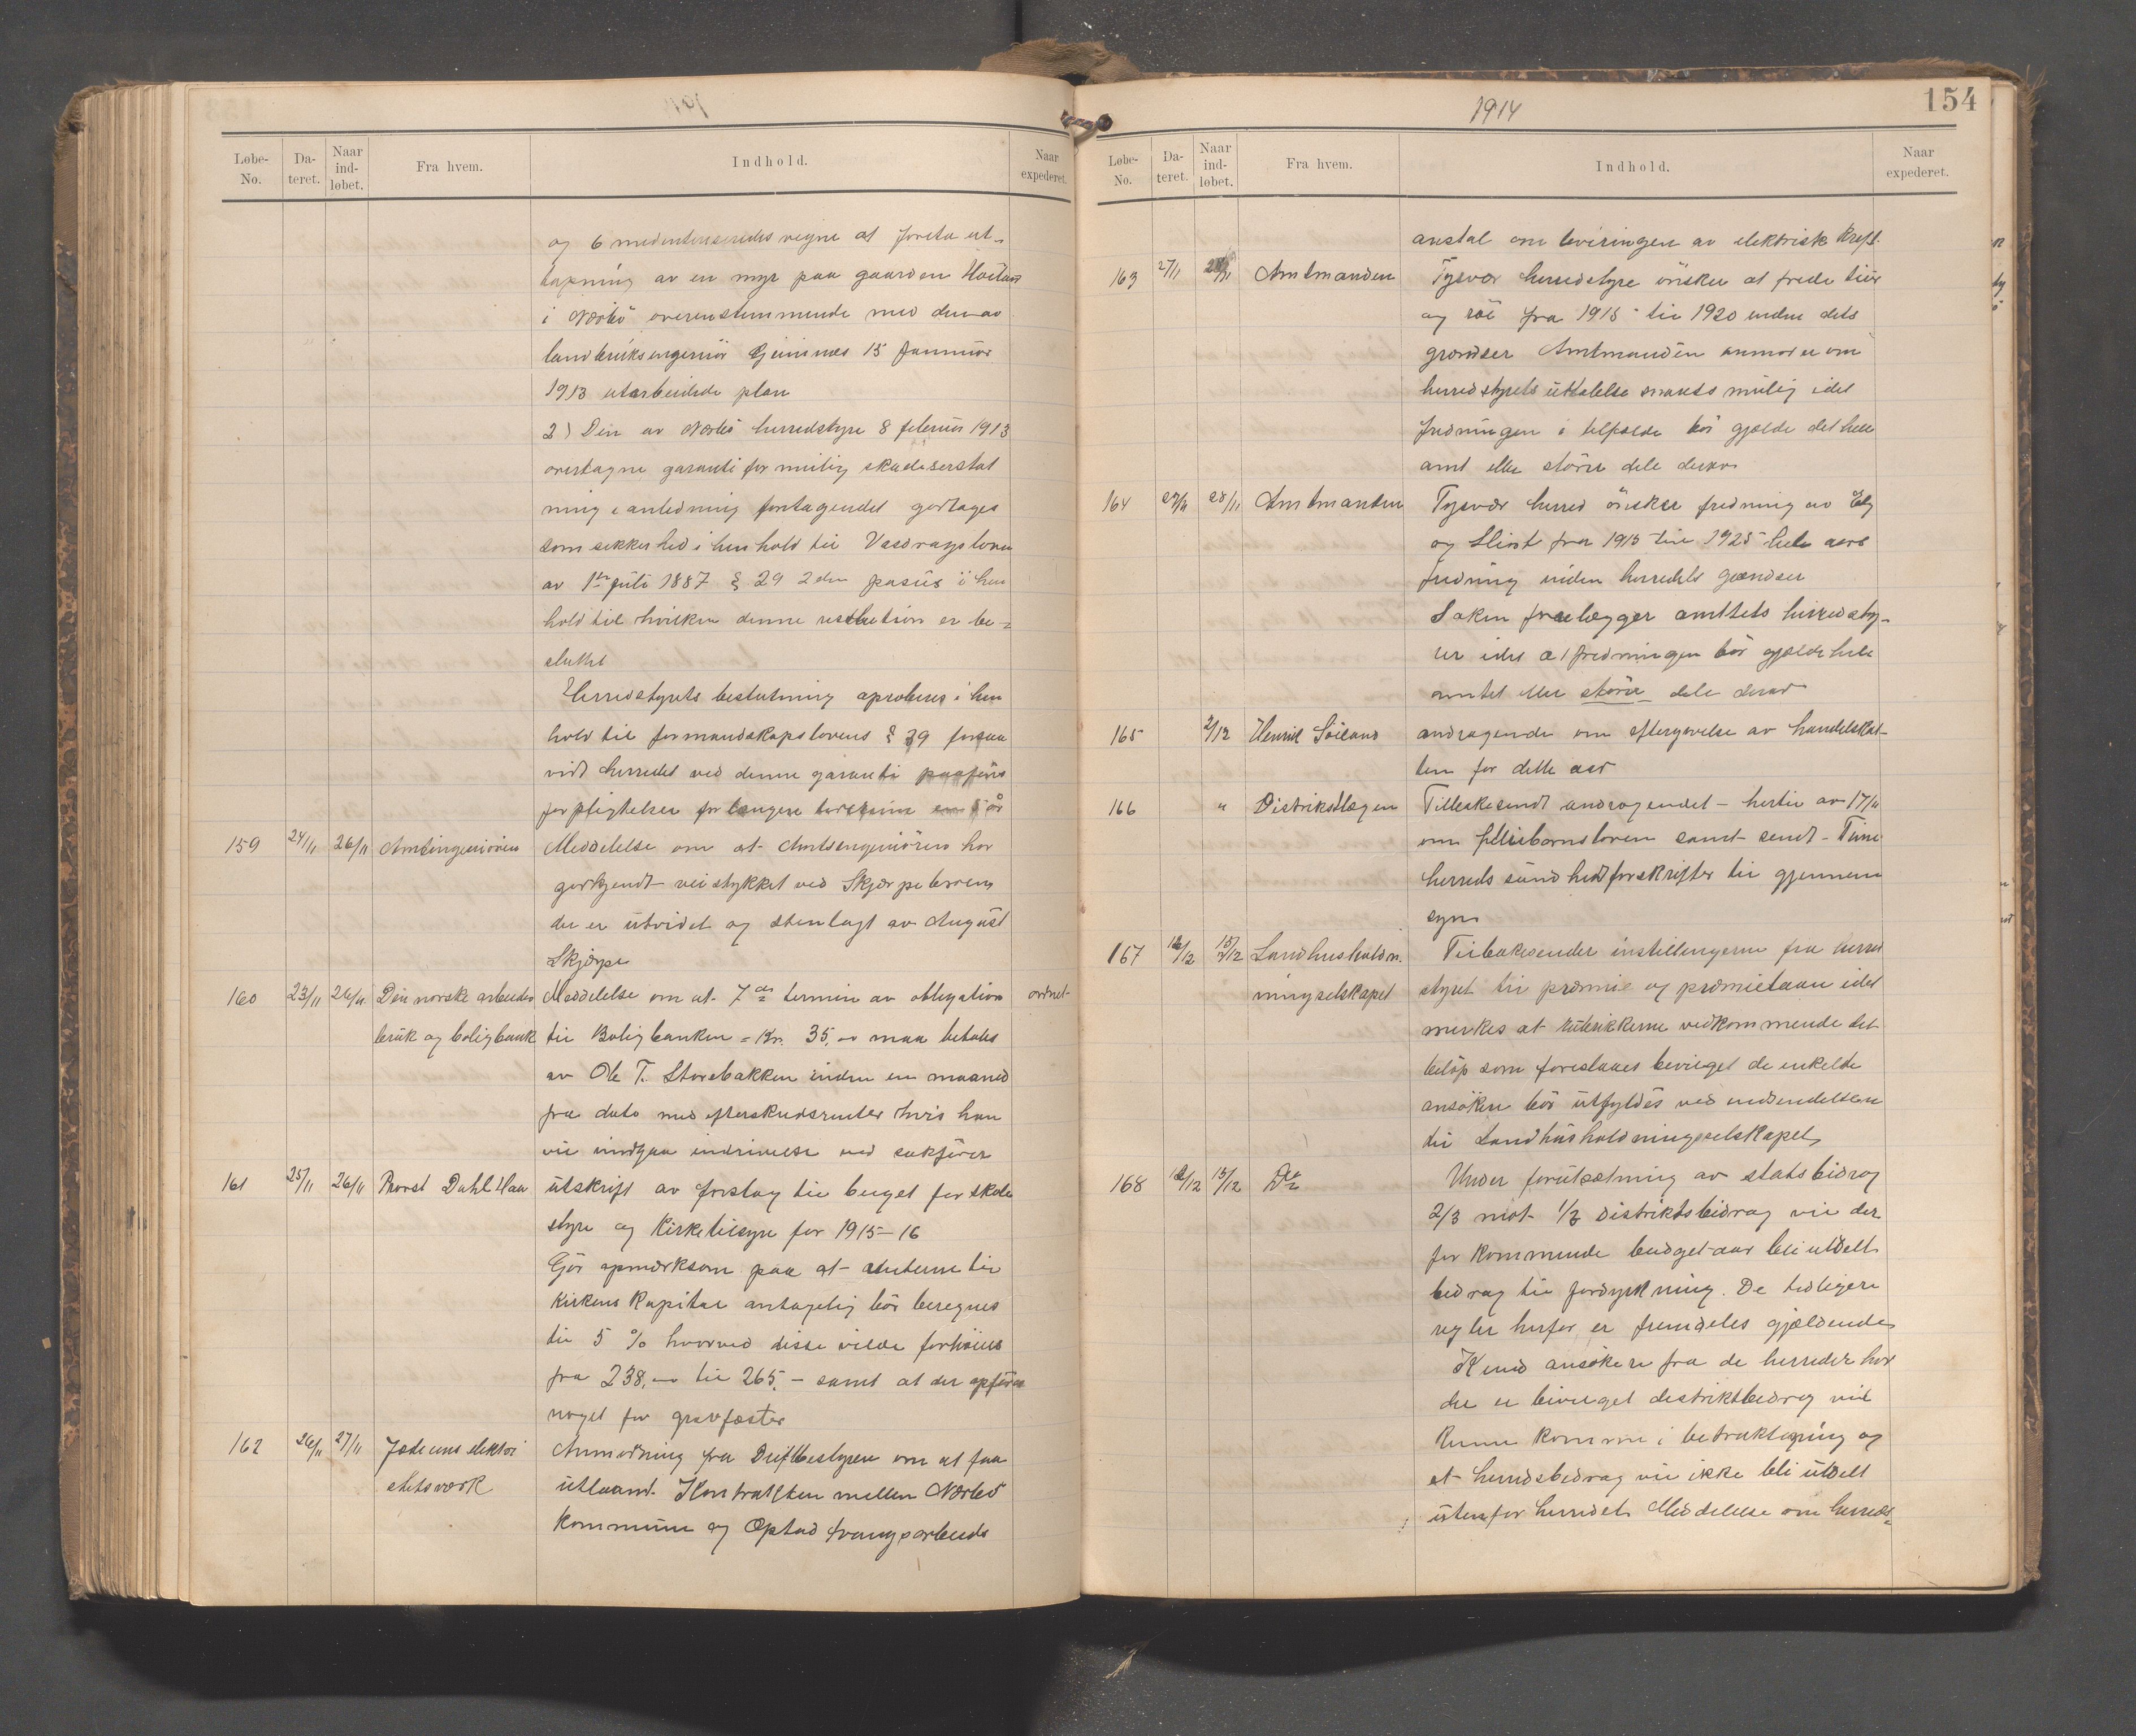 Løbe-No. Dateret. Naar indløbet. Fra hvem. Indhold. Naar expederet.
og 6 medinteresseredes vegne at foreta ut-
tapning av en myr paa gaarden Hoiland
i Nærbö overensstemmende med den av
landbruksingeniör Gjeimnes 15 Januar
1913 utarbeidede plan
2) Den av Nærbö herredstyre 8 februar 1913
overtagne garanti for mulig skadeserstat
ning i anledning foretagendet godtages
som sikkerhed i henhold til Vasdragsloven
av 1ste juli 1887 § 29 2den pasus i hen
hold til hvilken denne resolution er be-
sluttet
Herredstyrets beslutning aproberes i hen
hold til formandskapslovens § 39 forsaa
vidt herredet ved denne garanti paaføres
forpligtelser for længere tid enn 5 år
159 24/11 26/11 Amtsingeniören Meddelelse om at Amtsingeniören har
godkjendt veistykket ved Skjærpebroen
der er utvidet og stenlagt av August
Skjærpe
160 23/11 26/11 Den norske arbeider Meddelelse om at 7de termin av obligation ordnet
bruk og boligbank til Boligbanken = Kr. 35,00 maa betales
av Ole T. Storebakken inden en maaned
fra dato med efterskudsrenter hvis han
vil undgaa inddrivelse ved sakförer
161 25/11 26/11 Provst Dahl Haa utskrift av forslag til buget for skole
styre og Kirketilsyn for 1915-16
Gjör opmærksom paa at renterne til
Kirkens Kapital antagelig bör beregnes
til 5 % hvorved disse vilde forhöies
fra 238,00 til 265,- samt at der opföres
noget for gravfæster
162 26/11 27/11 Jæderens elektri Anmodning fra Driftbestyren om at faa
citetsverk utlaant Kontrakten mellem Nærbö
kommune og Opstad tvangsarbeids
1914
154
Løbe-No. Dateret. Naar indløbet. Fra hvem. Indhold. Naar expederet.
anstal om leveringen av elektrisk Kraft.
163 27/11 28/11 Amtmanden Tysvær herredstyre önsker at frede tiur
og röi fra 1915 til 1920 inden dets
grændser Amtmanden anmoder om
herredstyrets uttalelse snarest mulig idet
fredningen i tilfælde bör gjælde det hele
amt eller större dele derav
164 27/11 28/11 Amtmanden Tysvær herred önsker fredning av Elg
og Hiort fra 1915 til 1925 hele aars
fredning inden herredets grændser
Saken forelægger amtets herredsty-
rer idet at fredningen bör gjælde hele
amtet eller större dele derav
165 2/12 Henrik Söiland andragende om eftergivelse av handelskat-
ten for dette aar
166 " Distriktslægen Tilbakesendt andragendet hertil av 17/11
om pleiebarnsloven samt sendt Time
herreds sundhedforskrifter til gjennem
syn
167 12/12 15/12 Landhusholdn. Tilbakesender instillingerne fra herred
ningselskapet styret til præmie og præmielaan idet
merkes at rubrikkerne vedkommende det
belöp som foreslaaes bevilget de enkelte
ansöken bör utfyldes ved indsendelsen
til Landhusholdningsselskapet
168 12/12 15/12 Do Under forutsætning av statsbidrag
2/3 mot 1/3 distriktsbidrag vil der
for kommende budget-aar bli uttdelt
bidrag til jordyrkning. De tidligere
regler herfor er fremdeles gjældende
Kund ansökere fra de herreder hvor
der er bevilget distriktbidrag vil
kunne komme i betraktning og
et herredsbidrag vil ikke bli utdelt
utenfor herredet Meddelelse om herreds-